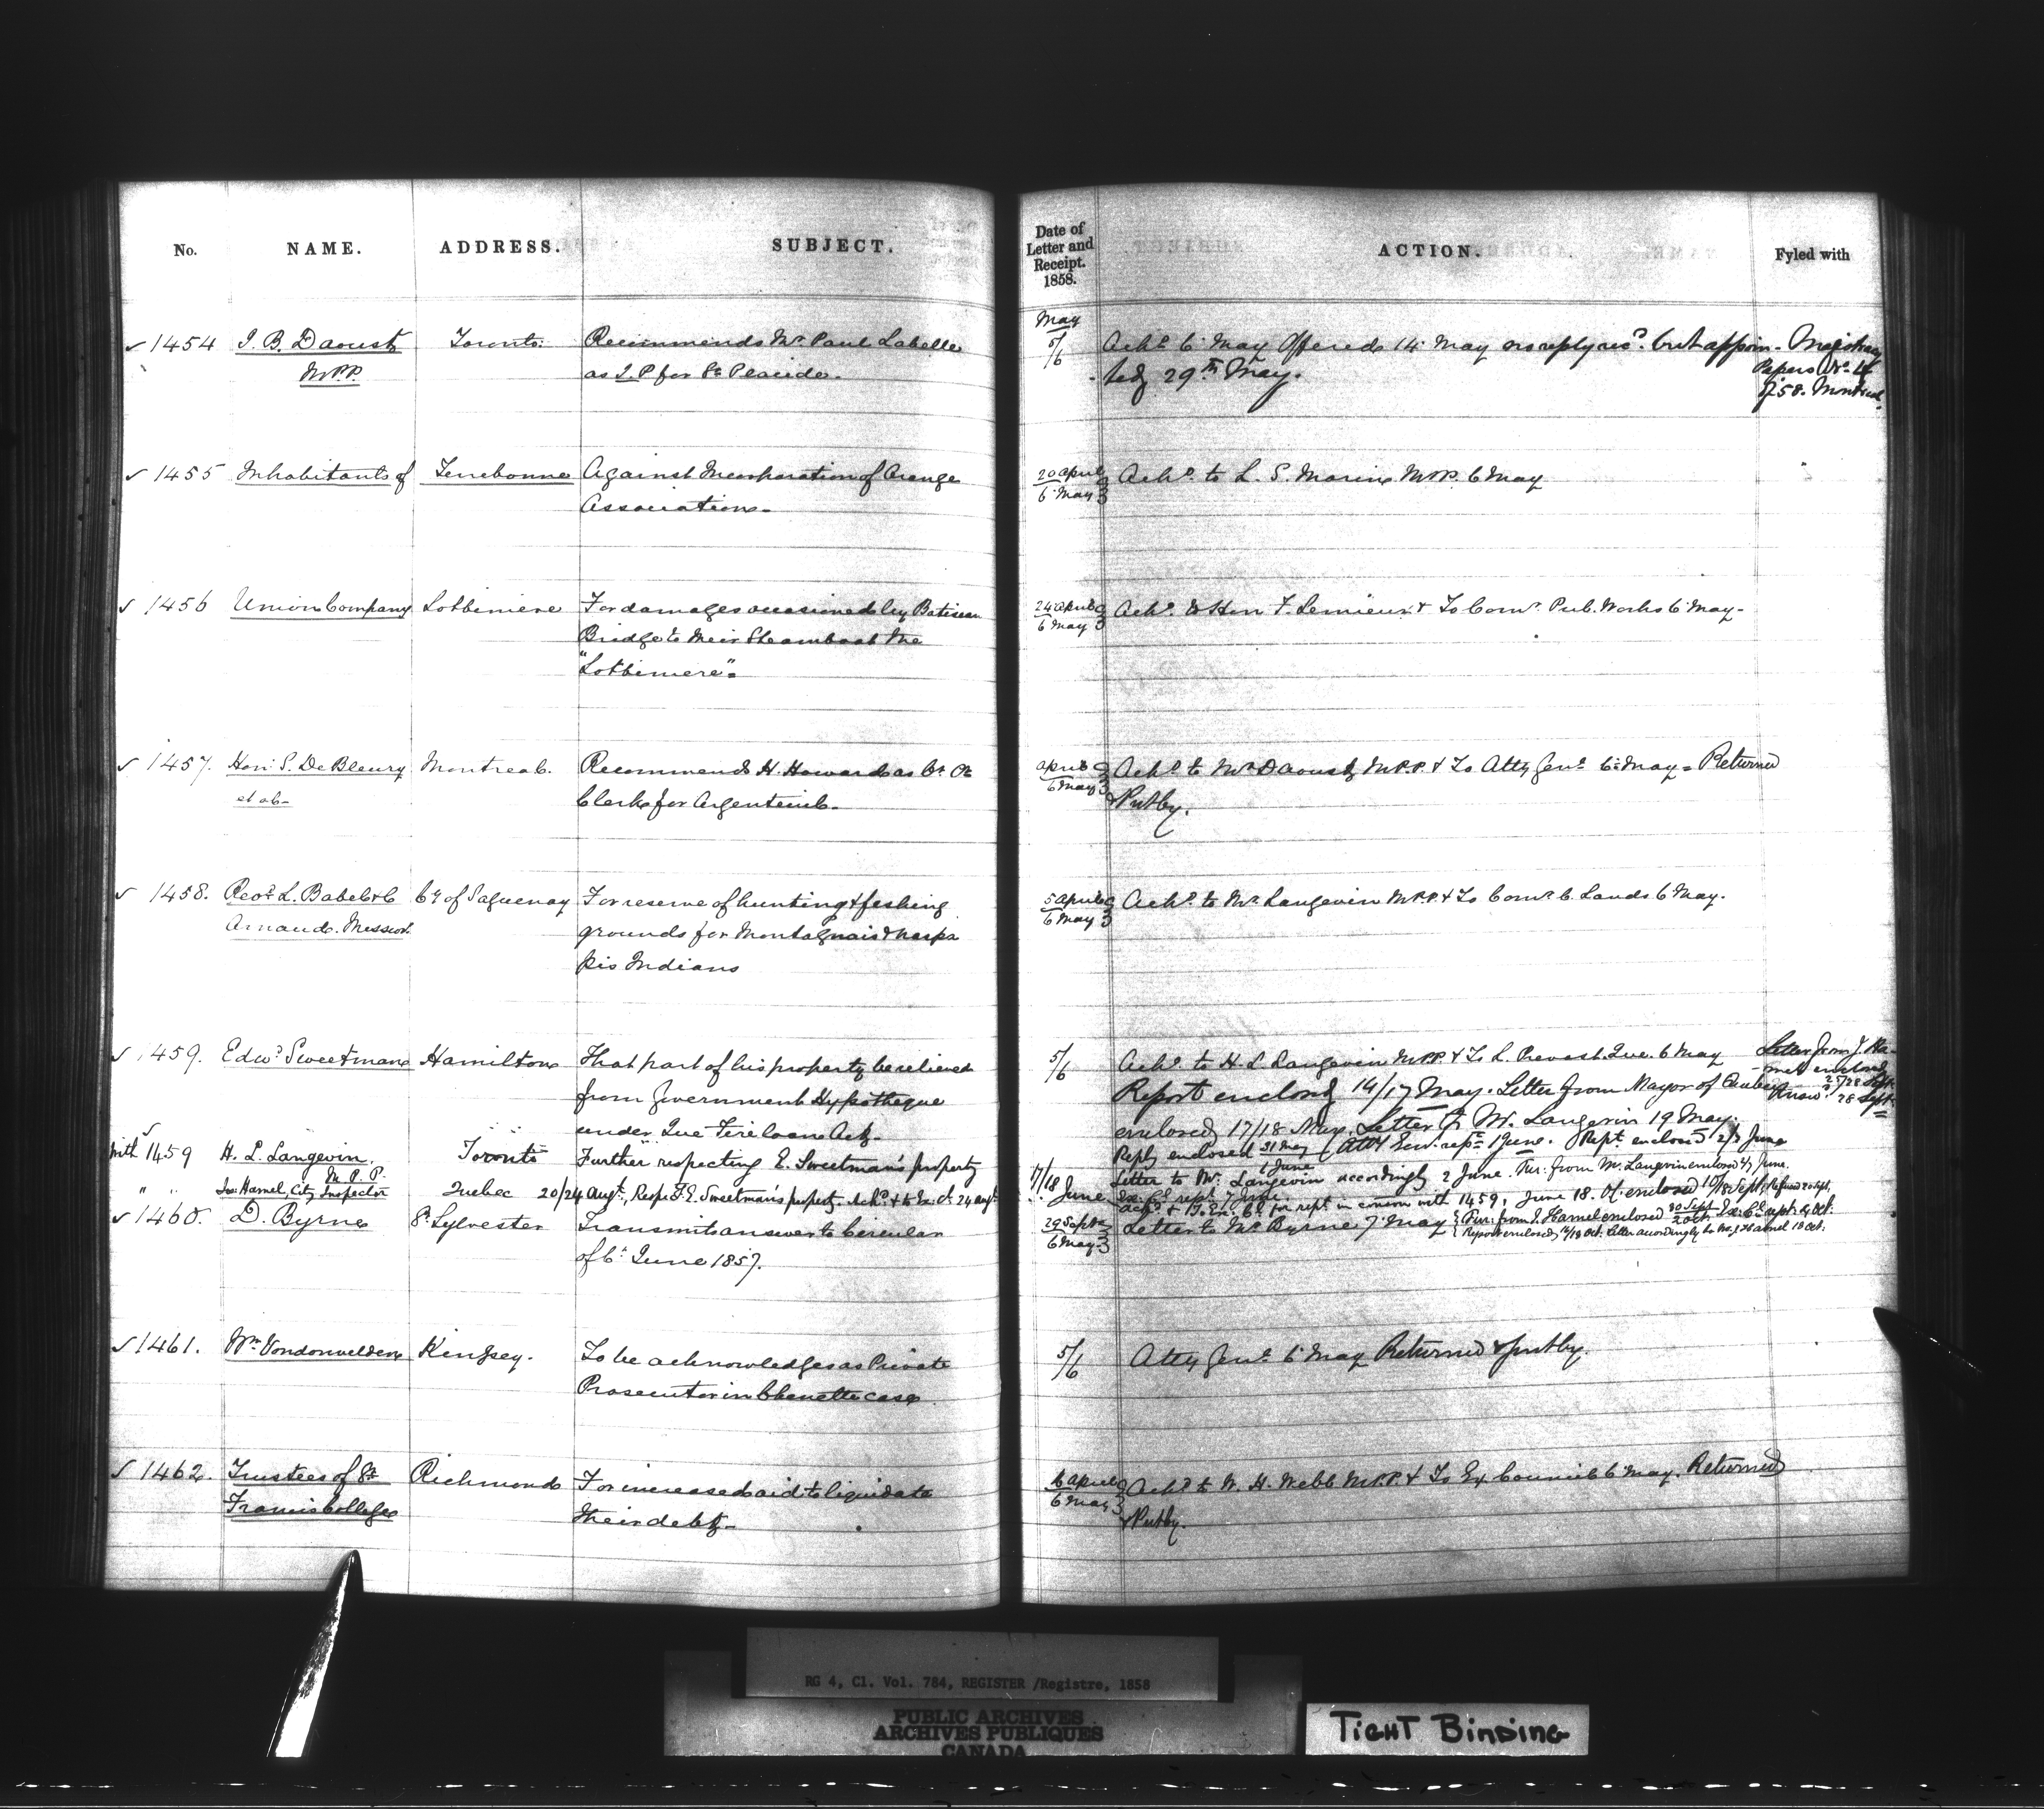 No.
NAME.
ADDRESS.
SUBJECT.
Date of
Letter and
Receipt.
1858.
ACTION.
Fyled with
May
1454 J. B. Daoust Toronto Recommends Mr. Paul Labelle 5/6 Ackd. 6 May Offered 14 May no reply recd. but appoin- Magistracy
M.P.P. as J.P for St Placide. ted 29th May. Papers No. 4
of 58. Montreal
1455 Inhabitants of Terrebonne Against Incorporation of Orange 20 April Ackd. to L. S. Morin M.P.P. 6 May
Association- 6 May
1456 Union Company Lotbiniere For damages occasioned by Batiscan 24 April Ackd. to Hon F. Lemieux & To Comr. Pub. Works 6 May-
Bridge to their Steamboat the 6 May
"Lotbiniere".
1457. Hon: S. De Bleury Montreal. Recommends H. Howard as Ct. Ct. April Ackd to Mr Daoust M.P.P. & To Atty Genl. 6 May - Returned
et al- Clerk for Argenteuil. 6 May & Putby.
1458. Revd. L. Babel & C Cy. of Saguenay For reserve of hunting & fishing 5 April Ackd. to Mr. Langevin M.P.P. & To Comr. C. Lands 6 May.
Arnaud. Missiors. grounds for Montagnais & Naspa 6 May
pis Indians
1459. Edwd. Sweetman Hamilton That part of his property be relieved 5/6 Ackd. to H. L Langevin M.P.P. & To L. Prevost. Que. 6 May Letter from J. Ha-
from Government Hypotheque Report enclosed 14/17 May. Letter from Mayor of Quebec mel enclosed 25/28 Sept.
under Que Fire loan Act. enclosed 17/18 May. Letter to Mr. Langevin 19 May. 28 Sept.
with 1459 H. L. Langevin. Toronto Further respecting E. Sweetman's property Reply enclosed 31 May/1 June (Atty Genl. rept. 1 June. Rept. enclosed 2/3 June
M.P.P. 17/18 June Letter to Mr. Langevin accordingly 2 June. Fur: from Mr. Langevin enclosed 4/7 June.
" " Jos: Hamel, City Inspector Quebec 20/24 Augt., Respg. E. Sweetman's property. Ackd. & to Ex. Cl. 24 augt. Ex. Cl. rept. 7 June.
Ackd. & To Ex. Cl. for rept. in connion with 1459, June 18. Of. enclosed 10/18 Sept; Refused 20 Sept.
1460. D. Byrne St. Sylvester Transmits answer to Circular 29 Sept Letter to Mr Byrne 7 May { Fur: from J. Hamel enclosed 30 Sept/2 Oct. Ex: Cl. rept. 4 Oct.
of 6 June 1857. 6 May Report enclosed 16/18 Oct. Letter accordingly to Mr J. Hamel 18 Oct.
1461. Wm. Vondonvelden Kingsey. To be acknowledged as Private 5/6 Atty Genl. 6 May Returned & putby.
Prosecutor in Chenette case
1462. Trustees of St. Richmond For increased aid to liquidate 16 April Ackd to W. H. Webb M.P.P. & To Ex Council 6 May. Returned
Francis College their debt- 6 May & Putby.
RG 4, C1. Vol. 784, REGISTER /Registre, 1858
PUBLIC ARCHIVES
ARCHIVES PUBLIQUES
CANADA
TIGHT BINDING